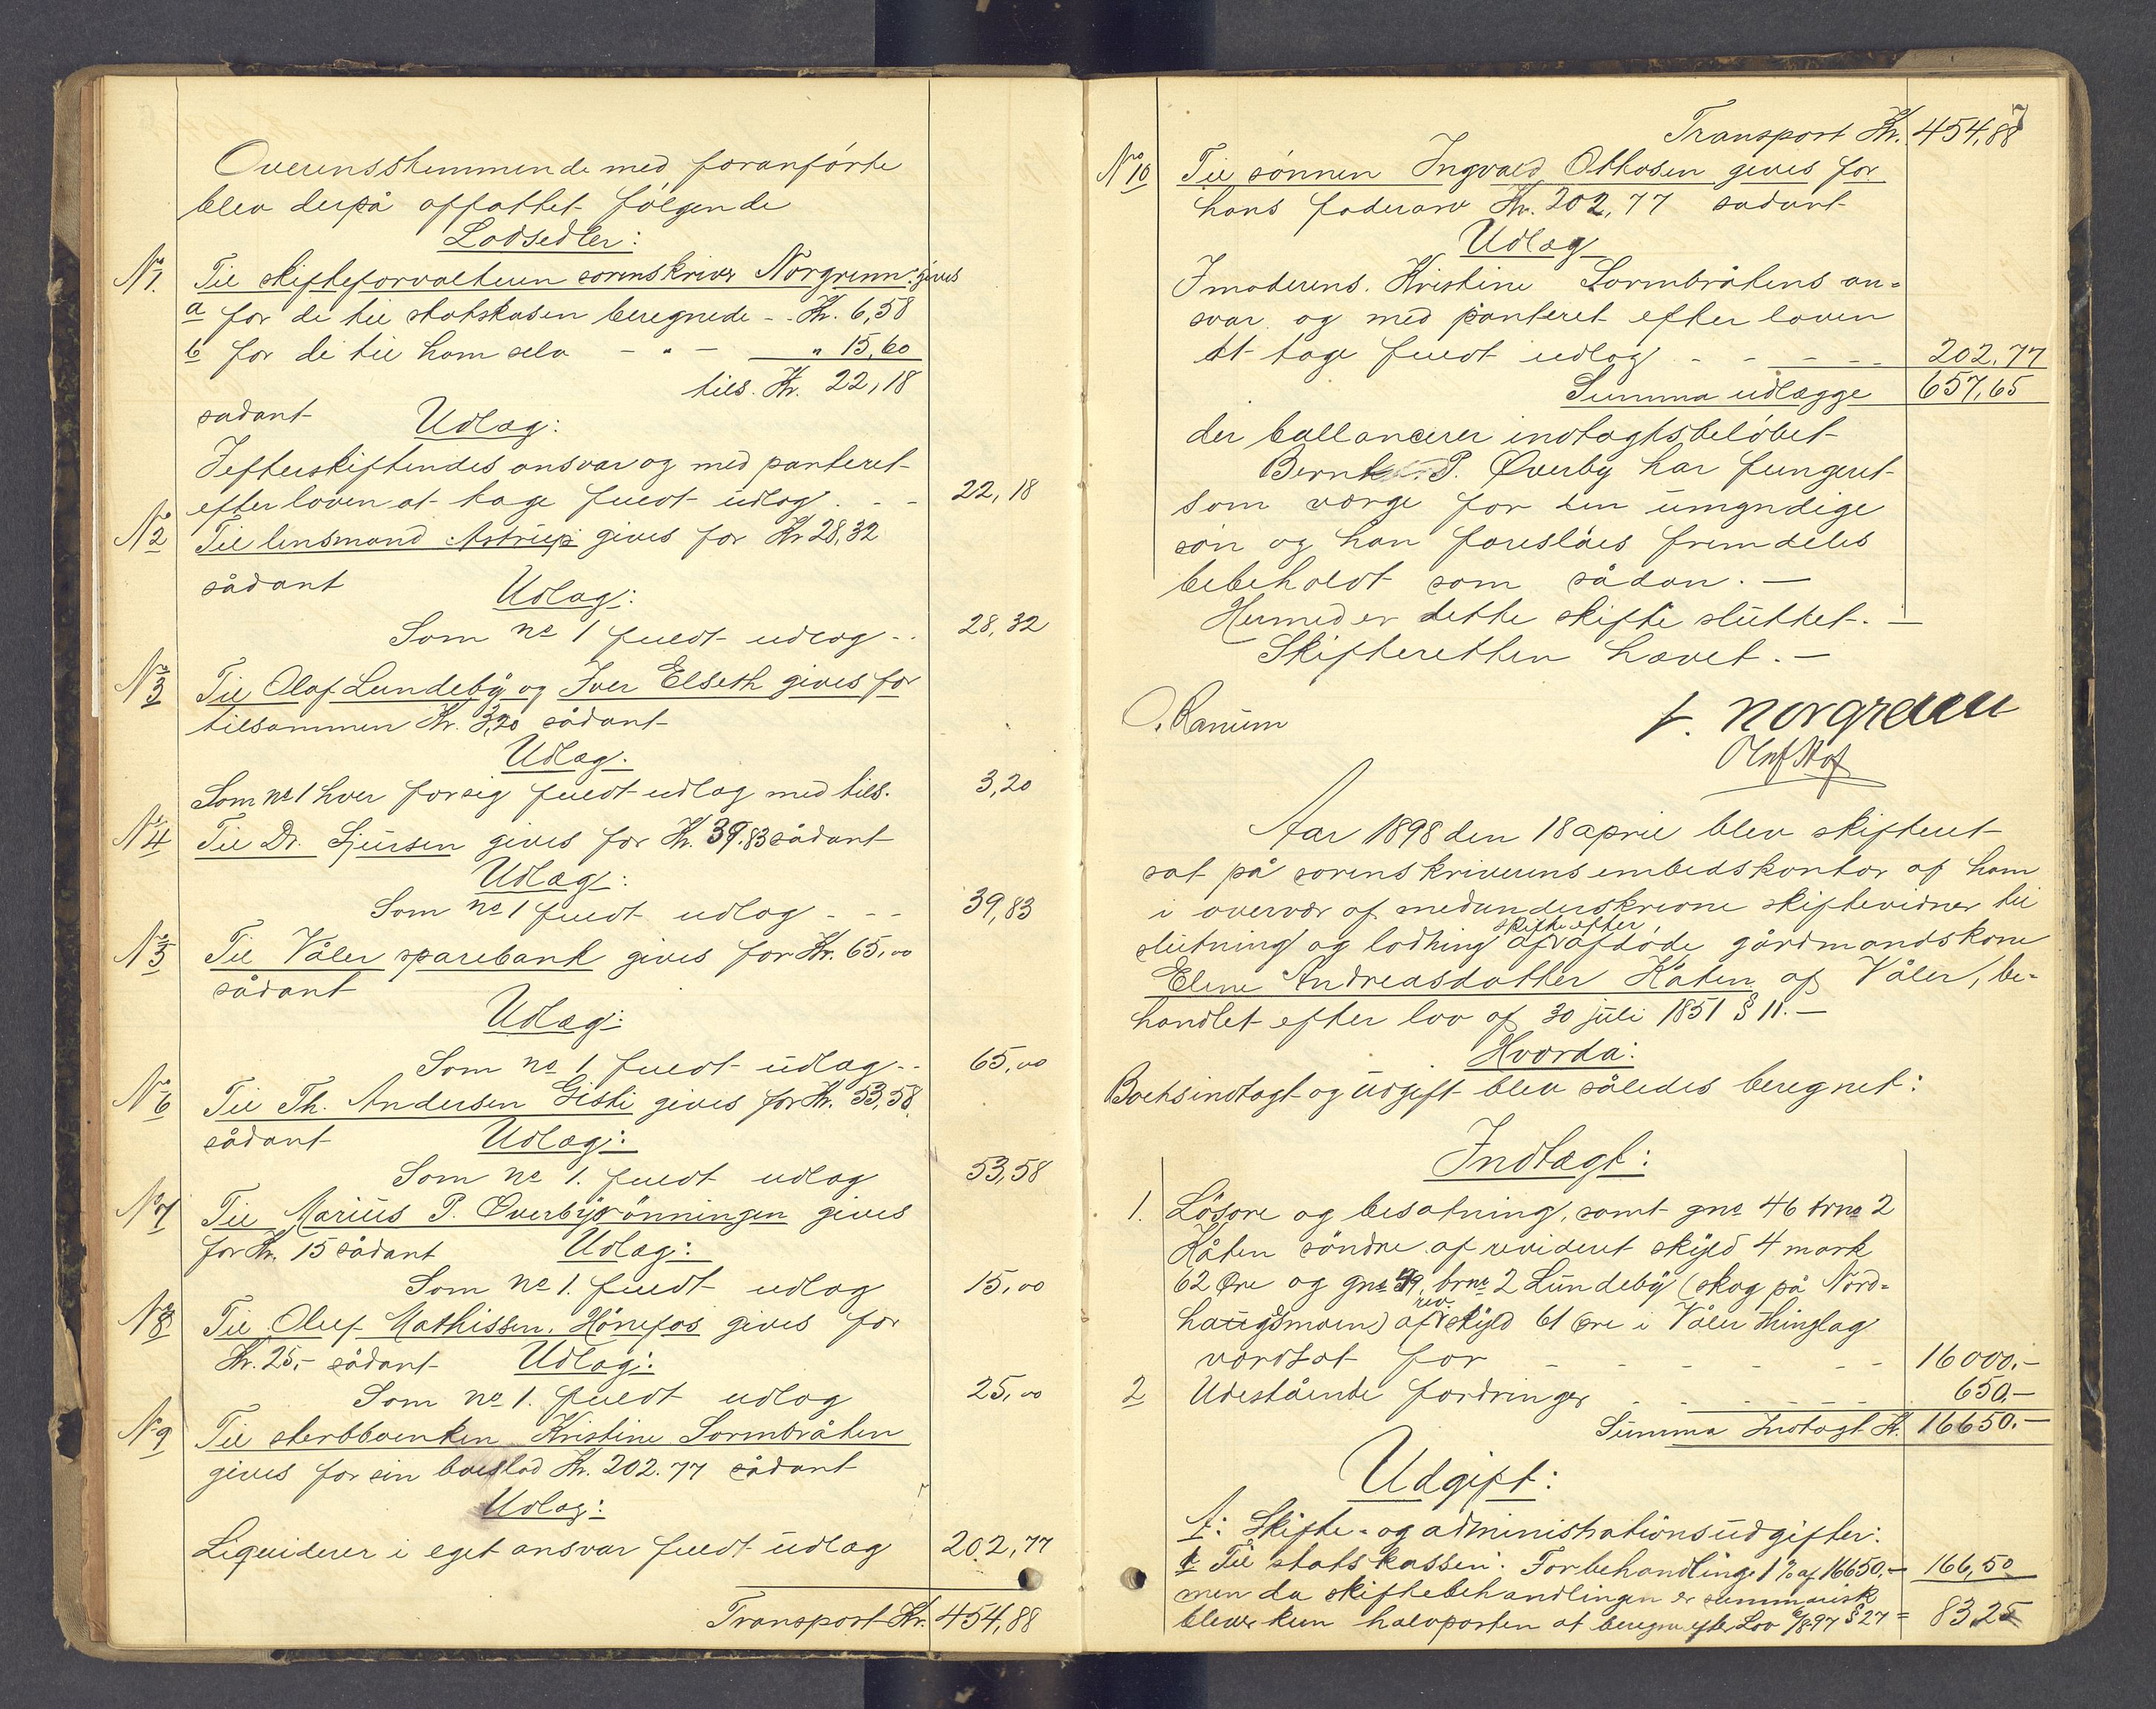 Overensstemmende med foranførte
blev derpå affattet følgende
Lodsedler:
No 1. Til skifteforvalteren sorenskriver Norgrenn: gives
a for de til statskassen beregnede - - Kr. 6,58
b for de til ham selv - " - " 15,60
tils. Kr. 22,18
sadant Udlag:
I efterskiftendes ansvar og med panteret
efter loven at tage fuldt udlag - - 22,18
No 2 Til lensmand Astrup gives for Kr 28,32
sådant
Udlag:
Som no 1 fuldt udlag - . 28,32
No 3 Til Olaf Lundeby og Iver Elseth gives for
tilsammen Kr. 3,20 sådant
Udlag.
Som no 1 hver for sig fuldt udlag med tils. 3,20
No 4 Til Dr. gives for Kr. 39.83 sådant
Udlæg:
Som no 1 fuldt udlag - - - 39,83
No 5 Til Våler sparebank gives for Kr. 65,00
sådant
Udlæg:
Som no 1 fuldt udlag - . 65,00
No 6 Til Th. Andersen gives for Kr. 53,58
sådant Udlæg:
Som no 1. fuldt udlag 53,58
No 7 Til Marius P. Øverbysønningen gives
for Kr. 15 sådant Udlag:
Som no 1. fuldt udlag 15,00
No 8 Til Oluf Mathissen, Hönefos gives for
Kr. 25,- sådant Udlag:
Som no 1. fuldt udlag 25,00
No 9 Til sterbboenken Kristine Sormbråten
gives for sin boeslod Kr. 202.77 sådant
Udlag:
Liquiderer i eget ansvar fuldt udlag 202,77
Transport Kr. 454,88
7
Transport Kr. 454,88
No 10 Til sønnen Ingvald Ottosen gives for
hans fadérarv Kr. 202,77 sadant
Udlæg
I moderens Kristine Sormbråtens an=
svar og med panteret efter loven
at tage fuldt udlag - - - - - 202,77
Summa udlægge 657,65
der ballancerer indtagtsbeløbet
Bernt P. Øverby har fungeret
som værge for den umyndige
søn og han foreslåes fremdeles
bebeholdt som sådan. —
Hermed er dette skifte sluttet. —
Skifteretten hævet. —
O. Ranum
t. Norgrenn
Olaf Hof
Aar 1898 den 18 april blev skifteret
sat på sorenskriverens embedskontor af ham
i overvær af medunderskrevne skiftevidner til
skifte efter
slutning og lodning af afdøde gårdmandskone
Eline Andreasdatter Håten af Våler, be=
handlet efter lov af 30 juli 1851 § 11. —
Hvorda:
Boets indtagt og udgift blev således beregnet:
Indtægt:
1. Løsøre og besætning, samt gno 46 brno 2
Håten søndre af revideret skyld 4 mark
62 Øre og gno 49, brno 2 Lundeby (skog på Nord=
rev.
haugsmoen) af skyld 61 øre i Våler thinglag
værdsat for - - - - - - 16000.-
2 Udestående fordringer - - - - - - 650.-
Summa Indtagt Kr. 16650.-
Udgift:
A: Skifte- og administrationsudgifter:
1. Til statskassen: For behandling 1% af 16650.- 166,50
men da skiftebehandlingen er summarisk
bliver kun halvparten at beregne efter Lov 6/8 97 § 27 = 83,25